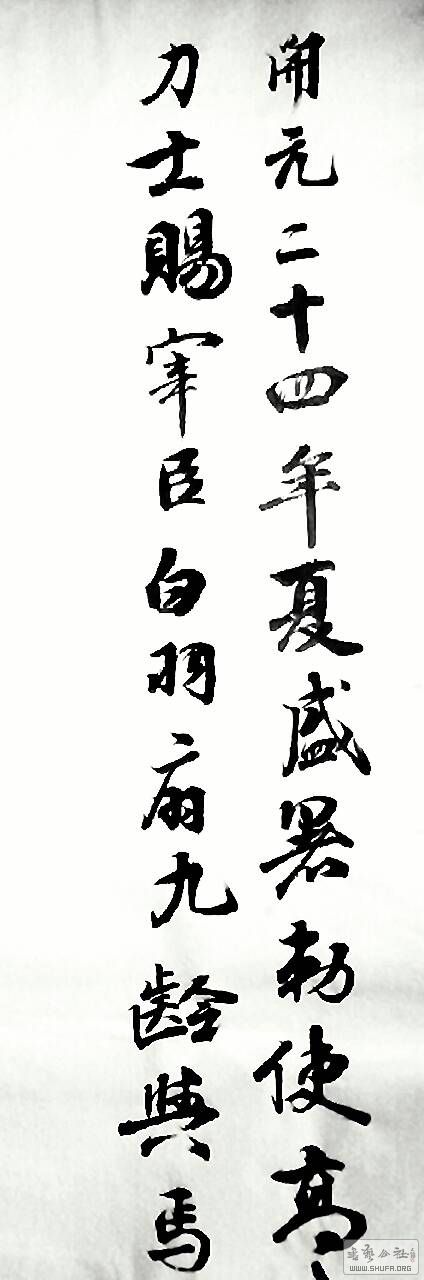 開元二十四年夏盛暑勅使高
力士賜宰臣白羽扇九齡與焉
书艺公社
WWW.SHUFA.ORG